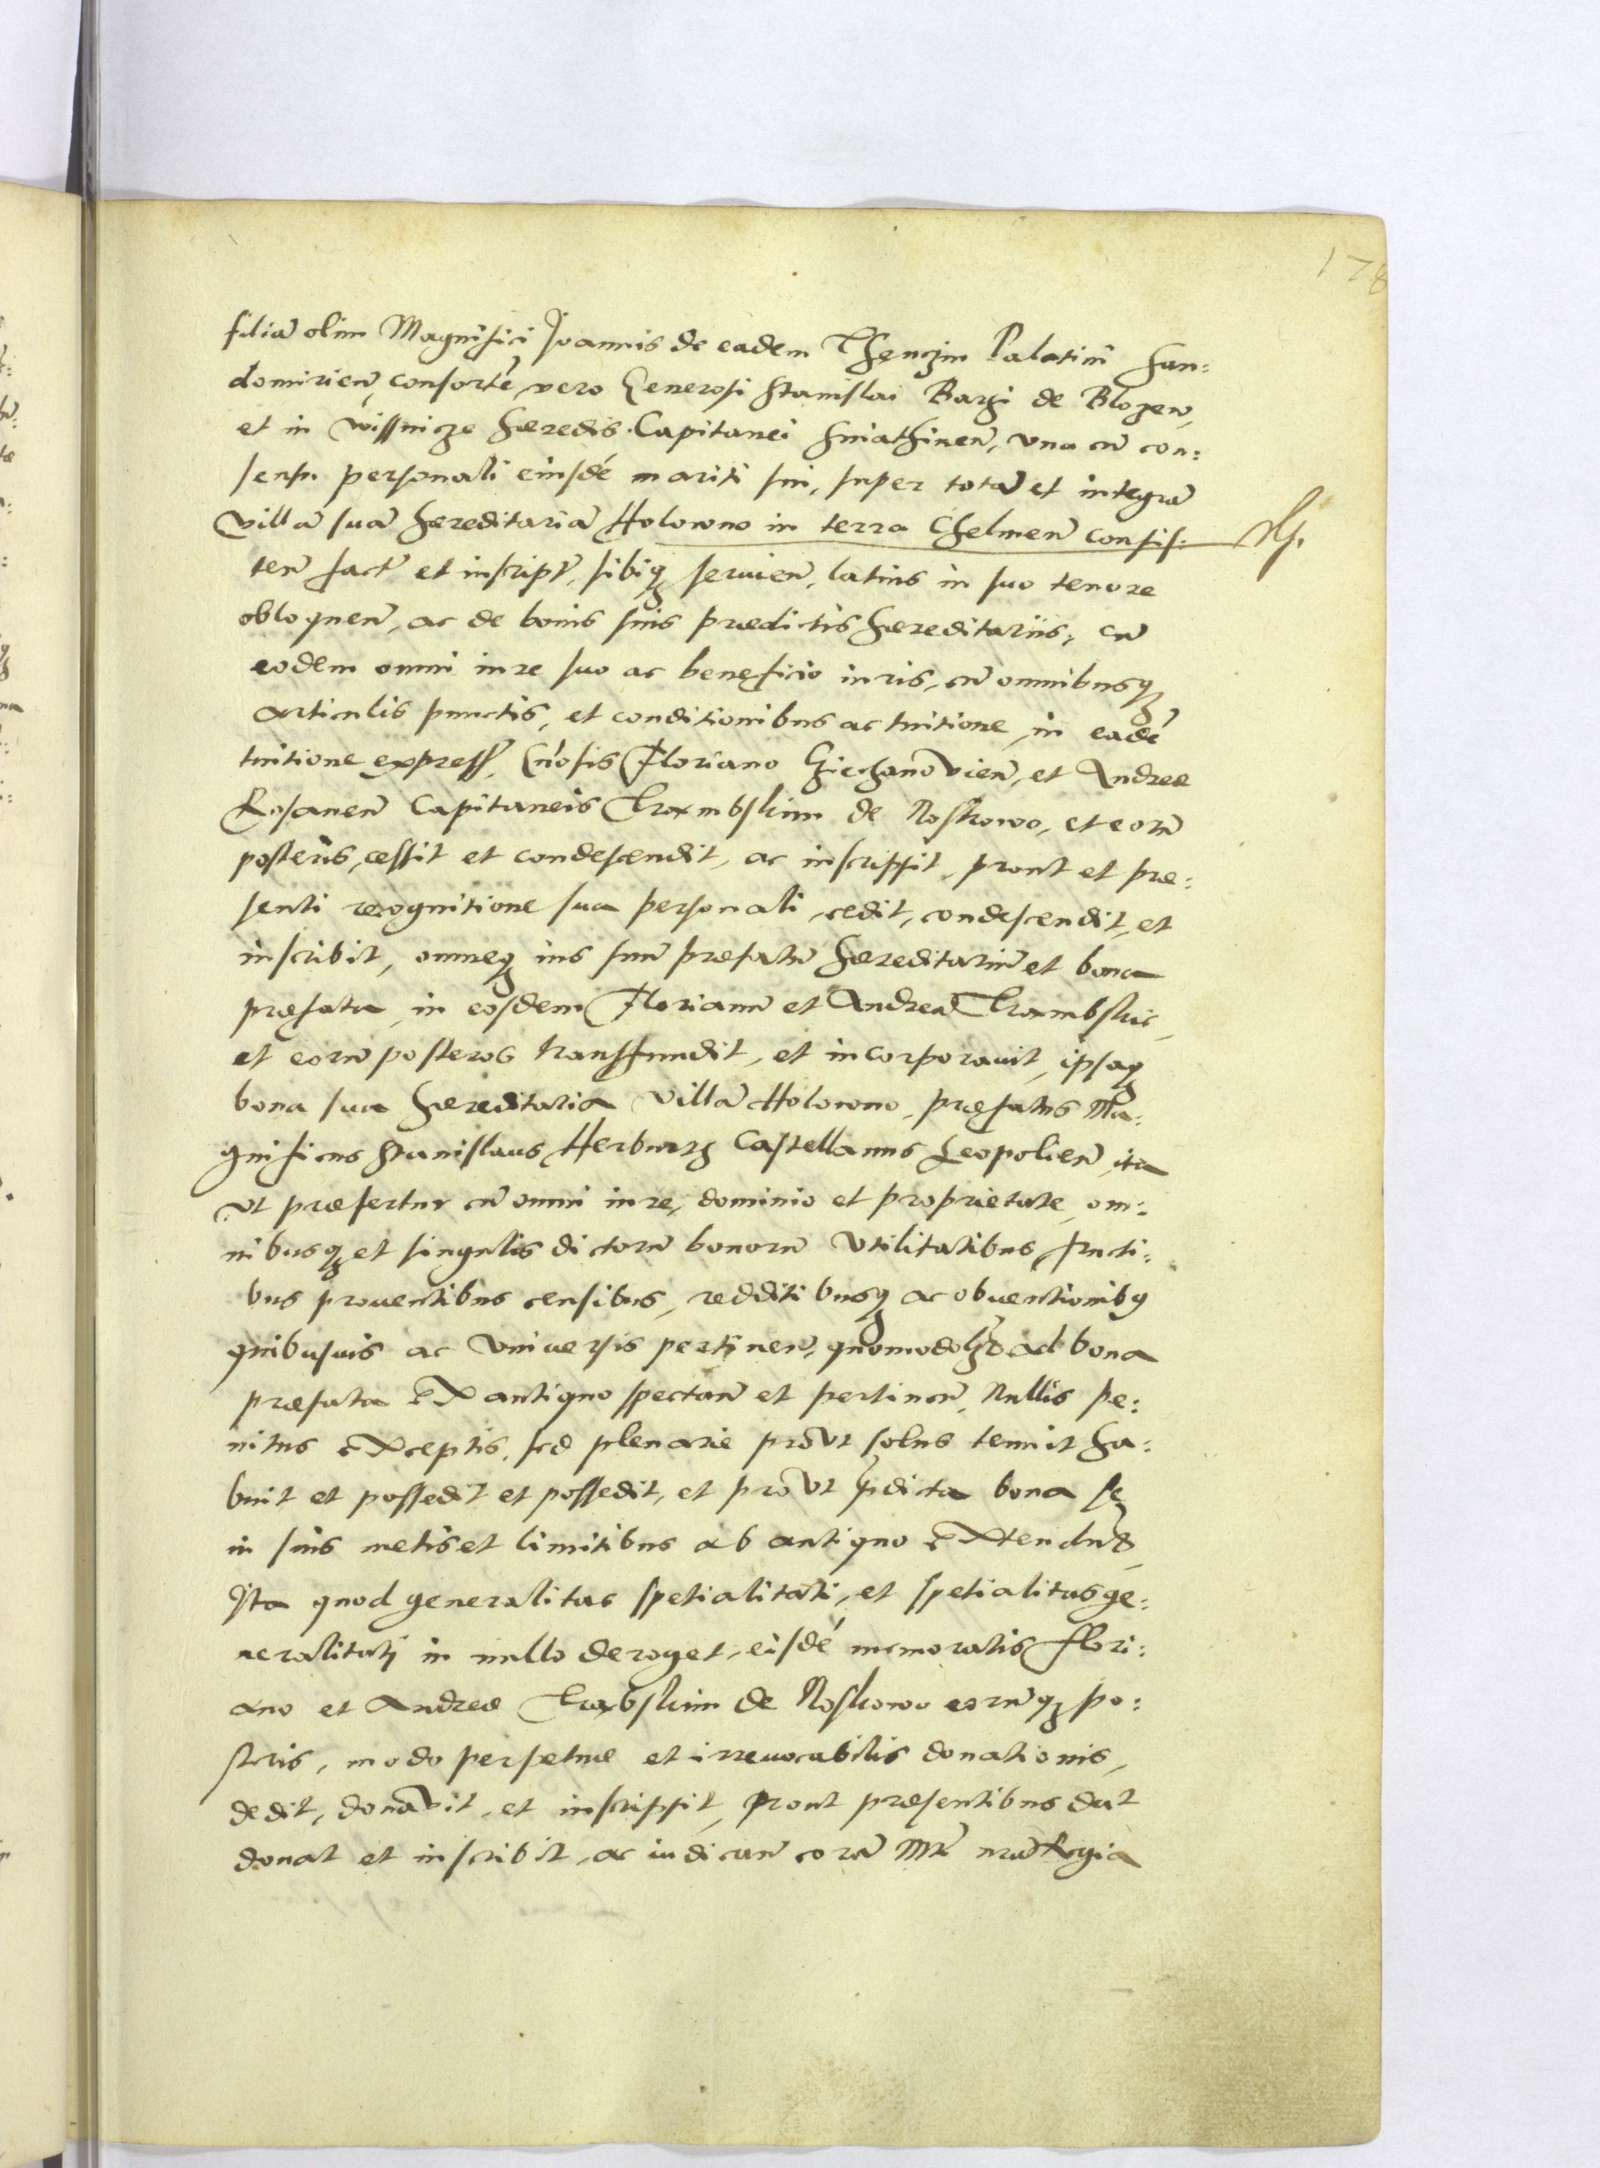 178
filiā olim Magnifici Joannis de eadem Thenczin Palatini San:
domirieñ, consortē vero Generosi Stanislai Barzi de Blozew,
et in Wissnicze Hæredis Capitanei Sniathineñ, vna cū con:
sensu personali eiusdē mariti sui, super totā et integrā
villā suā Hæreditariā Holowno in terra Chelmeñ consis:
teñ fact et inscript, sibiq̨ servieñ, latius in suo tenore
obloqueñ, ac de bonis suis prædictis Hæreditariis, cū
eodem omni iure suo ac beneficio iuris, cū omnibusq̨
articulis punctis, et conditionibus ac tuitione, in eadē
tuitione express, Gñosis Floriano Cziechanovieñ, et Andreæ
Rosaneñ Capitaneis Trambskim de Noskowo, et eorū
posteris, cessit et condescendit, ac inscripsit, prout et præ:
senti recognitione sua personali, cedit, condescendit, et
inscribit, omneq̨ ius suū præfatū Hæreditariū et bona
præfata, in eosdem Florianū et Andreā Trambskie,
et eorū posteros transfundit, et incorporavit, ipsaq̨
bona sua Hæreditaria villā Holowno, præfatus Ma:
gnificus Stanislaus Herburth Castellanus Leopolieñ, ita
vt præfertur cū omni iure, dominio et proprietate, om:
nibusq̨ et singulis dictorū bonorū vtilitatibus, fructi:
bus proventibus censibus, redditibusq̨ ac obventionibq̨
quibusuis ac vniversis pertineñ, quomodolꝫt ad bona
præfata ex antiquo spectañ et pertineñ, Nullis pe:
nitus exceptis, sed plenarie prout solus tenuit ha:
buit et possedit et possedit, et prout p̄dicta bona se
in suis metis et limitibus ab antiquo extendūt,
Ita quod generalitas spetialitati, et spetialitas ge:
neralitati in nullo deroget, eisdē memoratis Flori:
ano et Andreæ Trąbskim de Noskowo eorūq̨ po:
steris, modo perpetuæ et irreuocabilis donationis,
dedit, donavit, et inscripsit, prout præsentibus dat
donat et inscribit, ac iudicañ corā Mt̄e nr̄a Regia